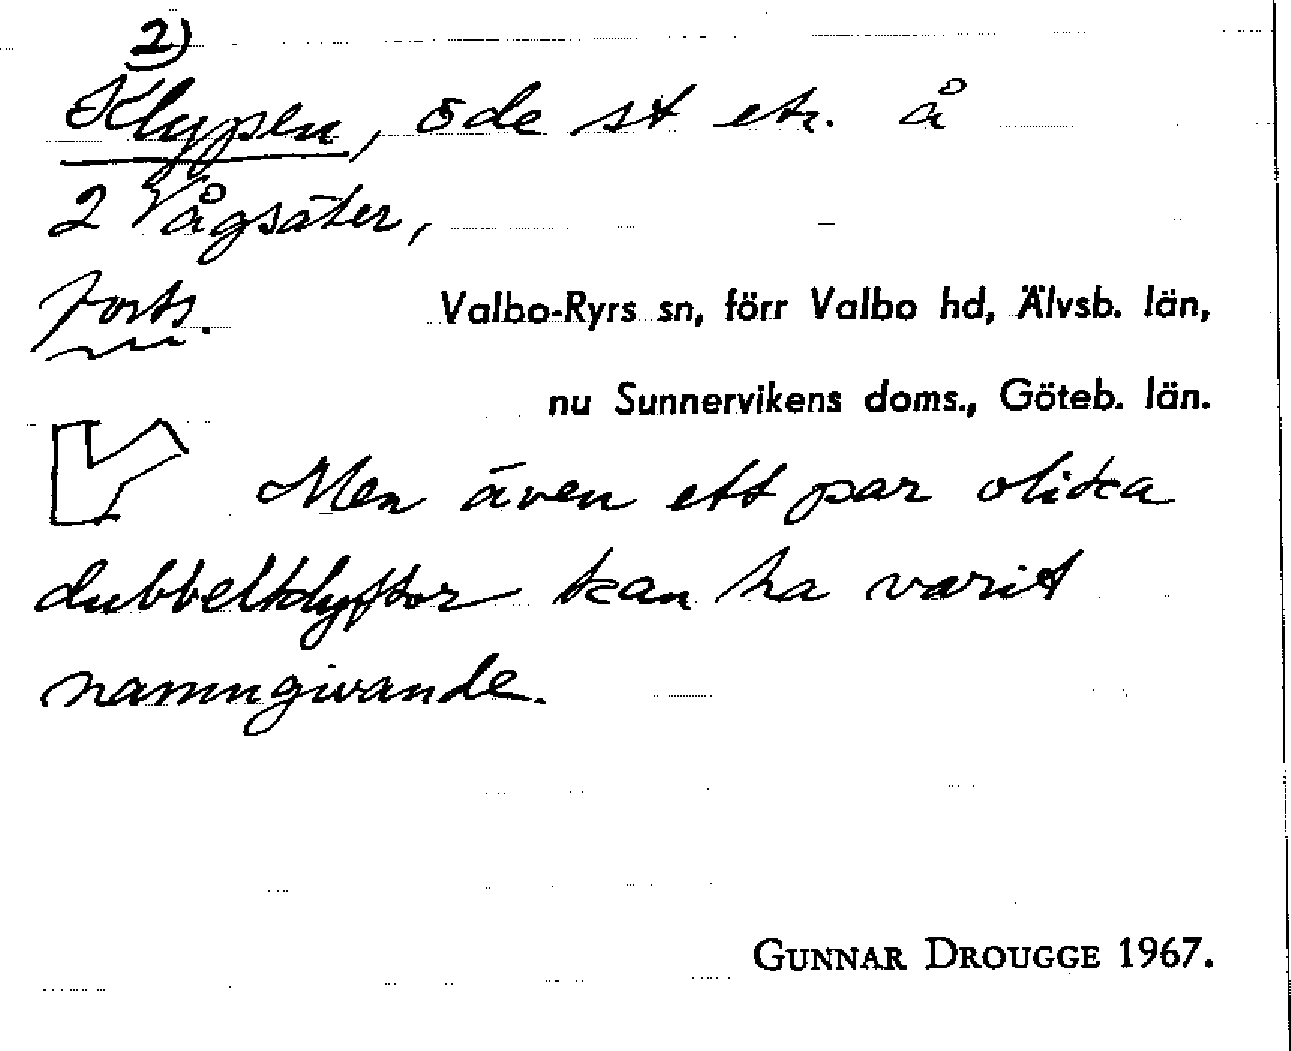 2)
Klypen, öde st etr. å
2 Vågsäter,
Forts.
Valbo-Ryrs sn, förr Valbo hd, Älvsb. län,
nu Sunnervikens doms., Göteb. län.
Men även ett par olika
dubbelklyftor kan ha varit
namngivande.
GUNNAR DROUGGE 1967.